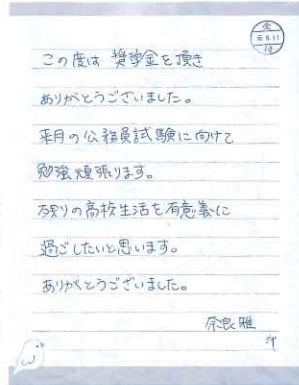 受
元.9.11
付
この度は 奨学金を頂き
ありがとうございました。
来月の公務員試験に向けて
勉強頑張ります。
残りの高校生活も有意義に
過ごしたいと思います。
ありがとうございました。
奈良 雅